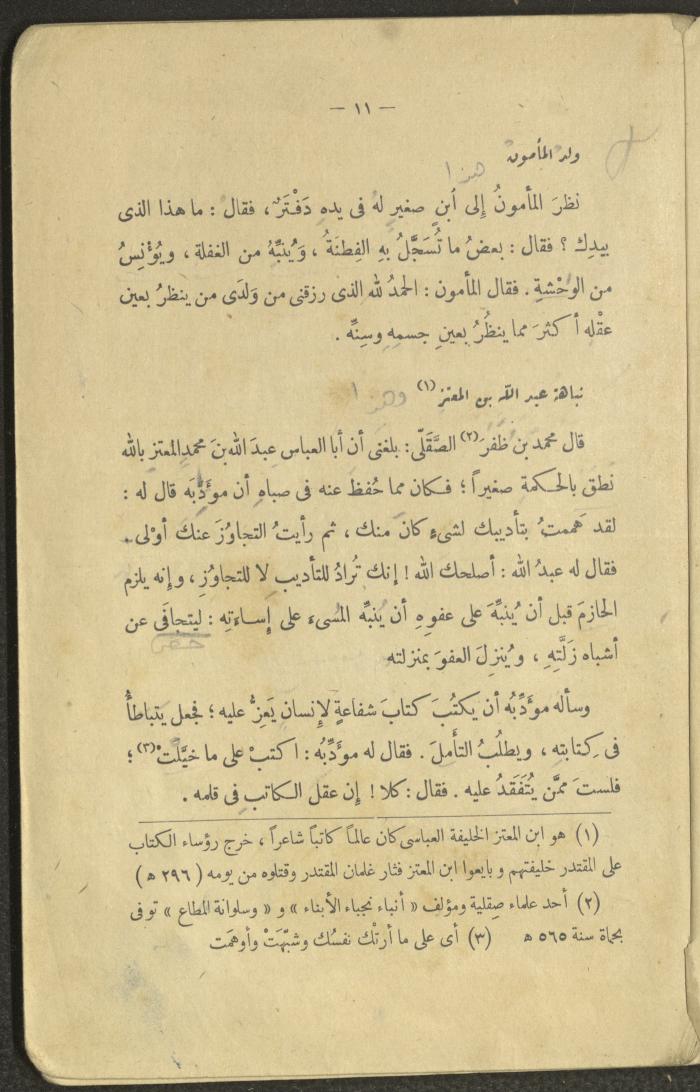 — ١١ —
ولد المأمون
هذا
نظرَ المأمونُ إلى ابنٍ صغيرٍ له فى يدهِ دَفْتَرٌ، فقال : ما هذا الذى
بيدِك ؟ فقال : بعضُ ما تُسَجَّلُ بهِ الفِطنَةُ ، وَيُنبِّهُ من الغفلة ، ويُؤْنِسُ
من الوحْشةِ . فقال المأمون : الحمدُ لله الذى رزقنى من وَلدَى من ينظرُ بعين
عقْلِه أكثرَ مما ينظُرُ بعينِ جسمِهِ وسِنِّه .
نباهة عبد اللّه بن المعتز (١)
وهذا
قال محمد بن ظفرَ (٢) الصَّقَلّى : بلغنى أن أبا العباس عبدَ الله بنَ محمدٍ المعتز بالله
نطق بالحكمة صغيراً ؛ فكان مما حُفظ عنه فى صباه أن مؤَدِّبَه قال له :
لقد هَممتُ بتأديبك لشىءٍ كانَ منك ، ثم رأيتُ التجاوُزَ عنك أوْلى .
فقال له عبدُ الله : أصلحك الله ! إنك تُرادُ للتأديبِ لا للتجاوُزِ ، وإنه يلزم
الحازمَ قبل أن يُنبِّهَ على عفوِهِ أن يُنبِّه المُسىءَ على إساءتِهِ : ليتجافَى عن
أشباه زَلَّتِهِ ، ويُنزِلَ العفوَ بمنزلته
وسأله مؤدِّبُه أن يكتُبَ كتابَ شفاعةٍ لإِنسانٍ يَعِزُّ عليه ؛ فجعل يتباطأُ
فى كِتابتِه ، ويطلُبُ التأملَ . فقال له مؤَدِّبُه : اكتبْ على ما خيَّلَتْ (٣) ؛
فلستَ ممَّن يُتَفَقَدُ عليه . فقال : كلا ! إن عقل الكاتب فى قلمه .
(١) هو ابن المعتز الخليفة العباسى كان عالماً كاتباً شاعراً ، خرج رؤساء الكتاب
على المقتدر خليفتهم وبايعوا ابن المعتز فثار غلمان المقتدر وقتلوه من يومه ( ٢٩٦ هـ )
(٢) أحد علماء صِقلية ومؤلف « أنباء نجباء الأبناء » و « وسلوانة المطاع » توفى
بحماة سنة ٥٦٥ هـ (٣) أى على ما أرتْك نفسُك وشبَّهَتْ وأوهمَت